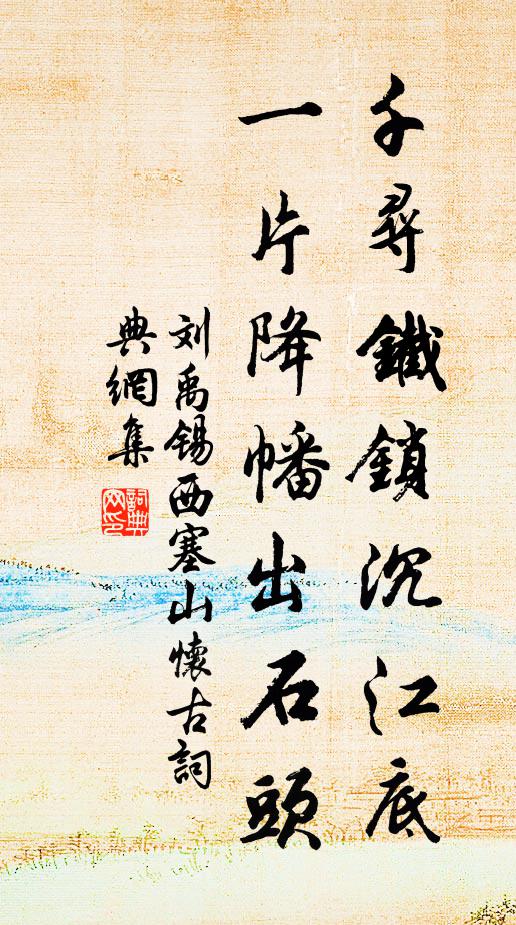 千尋鐵鎖沉江底
一片降幡出石頭
刘禹锡西塞山懷古詞
典網集
詞典网印